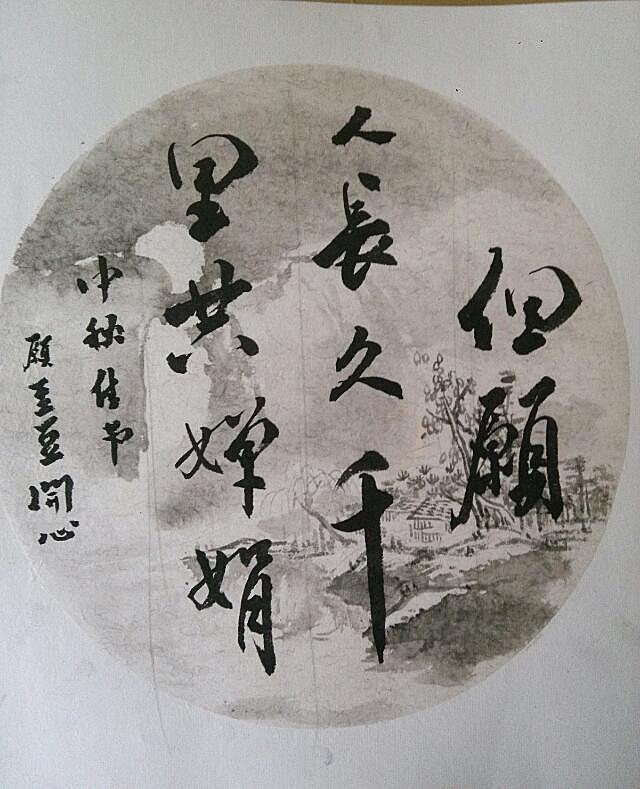 但願
人長久千
里共嬋娟
中秋佳节
願王豆開心